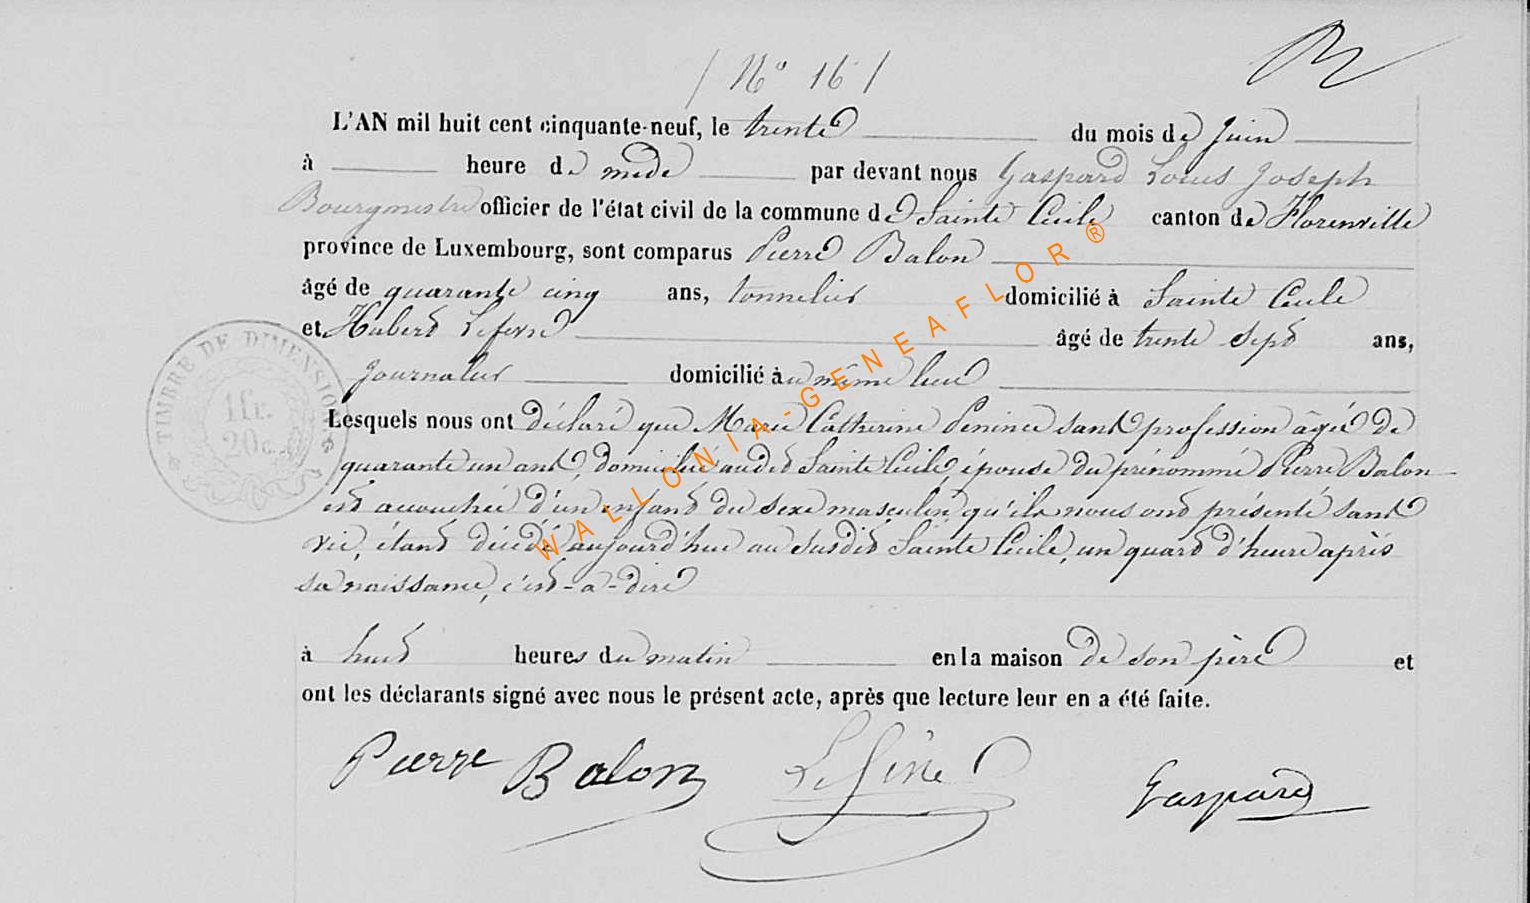 / N° 16 /
L'AN mil huit cent cinquante-neuf, le trente du mois de Juin
à heure de midi par devant nous Gaspard Louis Joseph
Bourgmestre officier de l'état civil de la commune de Sainte Cécile canton de Florenville
province de Luxembourg, sont comparus Pierre Balon
âgé de quarante cinq ans, tonnelier domicilié à Sainte Cécile
et Hubert Lefevre âgé de trente sept ans,
Journalier domicilié au même lieu
Lesquels nous ont déclaré que Marie Catherine sans profession âgée de
quarante un ans, domiciliée audit Sainte Cécile, épouse du prénommé Pierre Balon
est accouchée d'un enfant du sexe masculin, qu'ils nous ont présenté sans
vie, étant décédé aujourd'hui au susdit Sainte Cécile, un quart d'heure après
sa naissance, c'est-à-dire
à huit heures du matin en la maison de son père et
ont les déclarants signé avec nous le présent acte, après que lecture leur en a été faite.
Pierre Balon Gaspard
TIMBRE DE DIMENSION
1 fr.
20 c.
WALLONIA-GENEAFLOR®